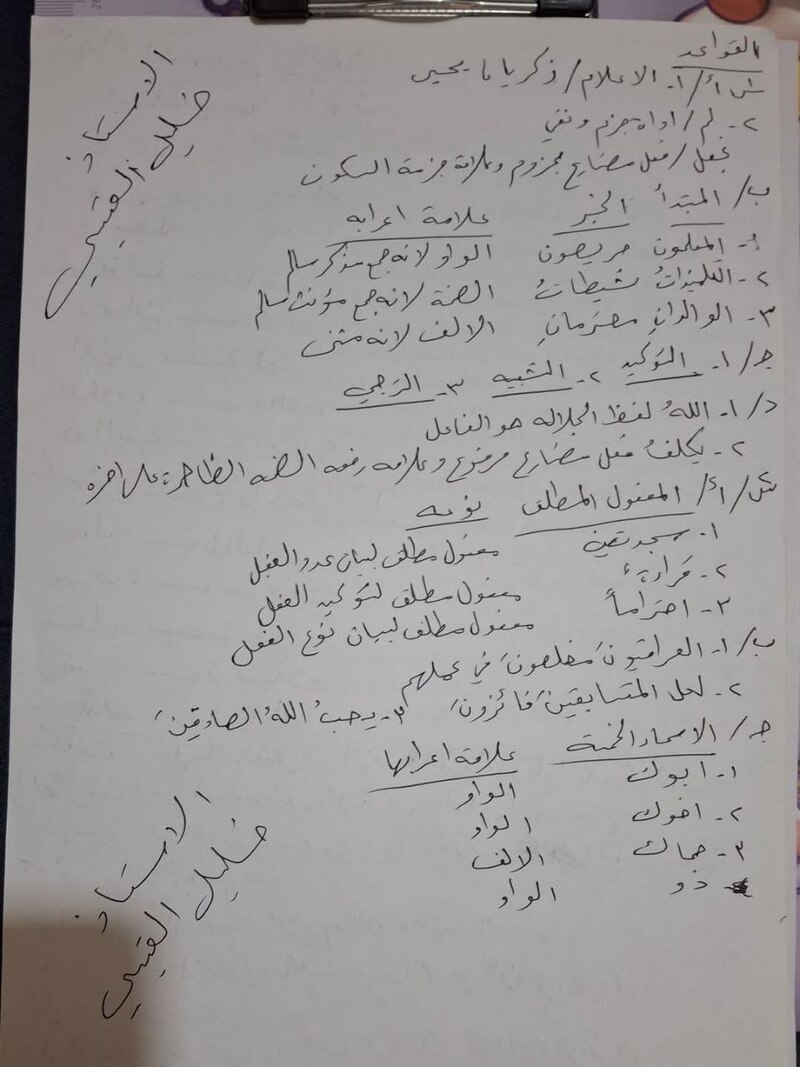 القواعد
س١/أ/١- الاعلام/ زكريا ، يحيى
٢- لم/ اداة جزم ونفي
نجعل/ فعل مضارع مجزوم وعلامة جزمة السكون
ب/ المبتدأ الخبر علامة اعرابه
١- المعلمون حريصون الواو لانه جمع مذكر سالم
٢- التلميذاتُ نشيطاتُ الضمة لانه جمع مؤنث سالم
٣- الوالدانِ محترمانِ الالف لانه مثنى
جـ/ ١- التوكيد ٢- التشبيه ٣- الترجي
د/ ١- اللهُ لفظ الجلاله هو الفاعل
٢- يكلفُ فعل مضارع مرفوع وعلامه رفعه الضمه الظاهرة على اخره
س٢/أ/ المفعول المطلق نوعه
١- سجدتين مفعول مطلق لبيان عدد الفعل
٢- قراءةً مفعول مطلق لتوكيد الفعل
٣- احتراماً مفعول مطلق لبيان نوع الفعل
ب/ ١- العراقيونَ مخلصونَ في عملهم
٢- لعل المتسابقينَ فائزونَ ٣- يحبُ اللهُ الصادقينَ
جـ/ الاسماء الخمسة علامة اعرابها
١- ابوك الواو
٢- اخوك الواو
٣- حماك الالف
ذو الواو
الاستاذ
خليل القيسي
الاستاذ
خليل القيسي